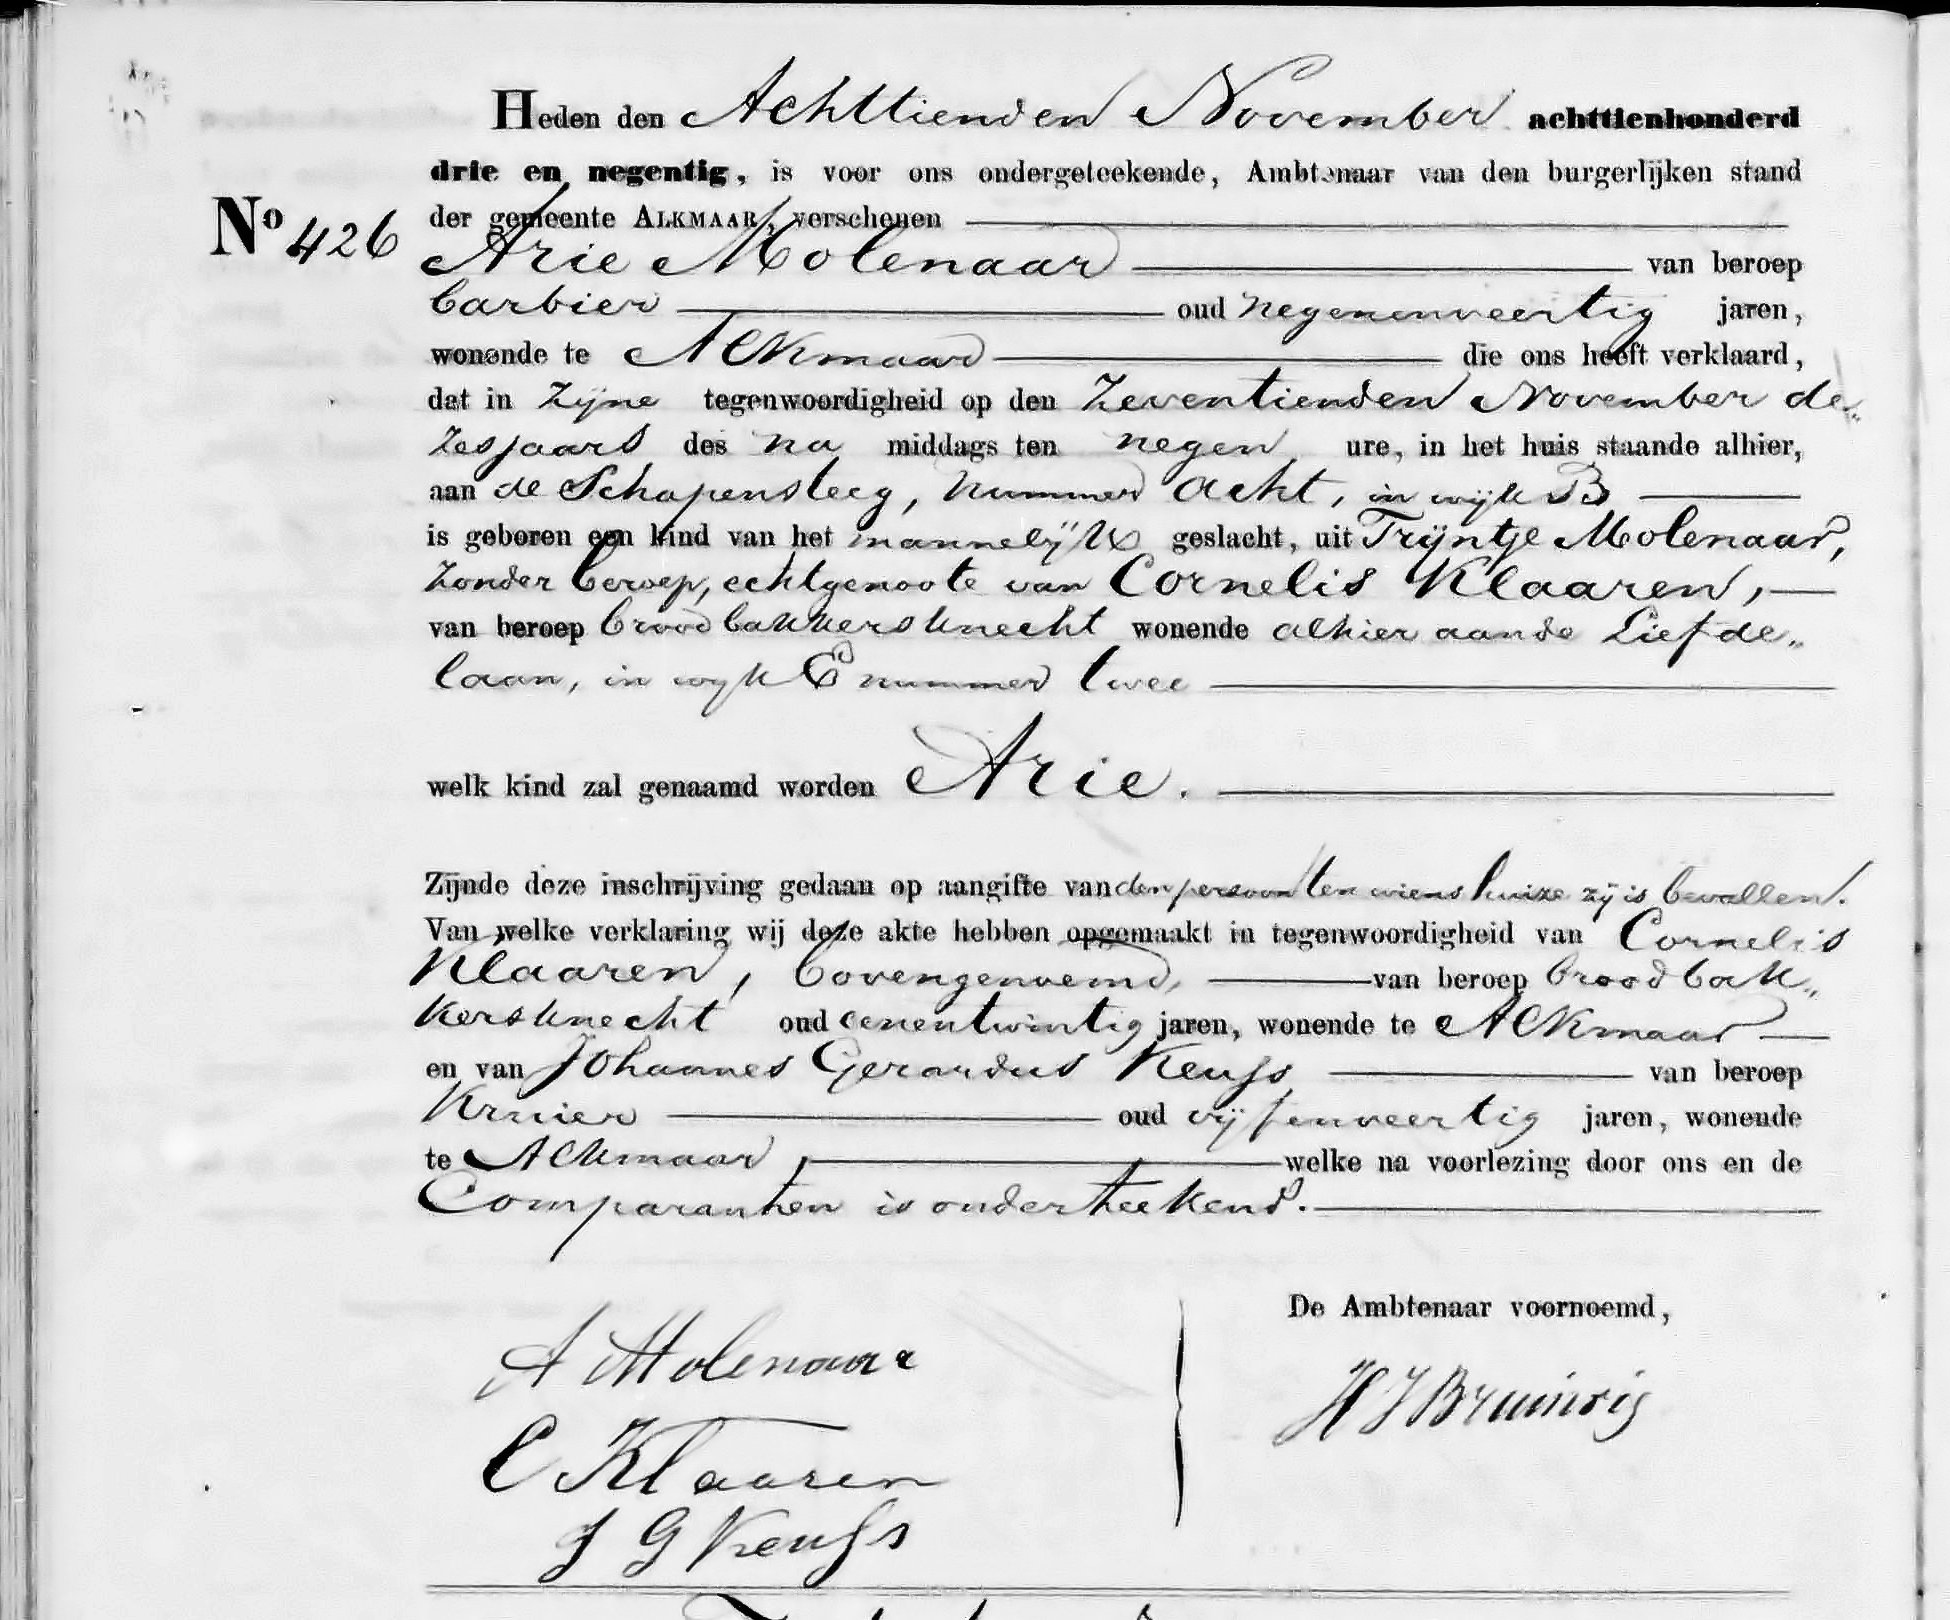 Heden den Achttienden November achttienhonderd
drie en negentig, is voor ons ondergeteekende, Ambtenaar van den burgerlijken stand
der gemeente ALKMAAR, verschenen
No 426
Arie Molenaar van beroep
barbier oud negenenveertig jaren,
wonende te Alkmaar die ons heeft verklaard,
dat in zijne tegenwoordigheid op den zeventienden November de„
zesjaars des na middags ten negen ure, in het huis staande alhier,
aan de Schapensteeg, nummer acht, in wijk B
is geboren een kind van het mannelijk geslacht, uit Trijntje Molenaar,
zonder beroep, echtgenoote van Cornelis Klaaren,
van beroep broodbakkersknecht wonende alhier aan de Liefde„
laan, in wijk E nummer twee
welk kind zal genaamd worden Arie.
Zijnde deze inschrijving gedaan op aangifte van den persoon ten wiens huize zij is bevallen.
Van welke verklaring wij deze akte hebben opgemaakt in tegenwoordigheid van Cornelis
Klaaren, bovengenoemd, van beroep broodbak„
kersknecht oud eenentwintig jaren, wonende te Alkmaar
en van Johannes Gerardus Keuss van beroep
Kruier oud vijfenveertig jaren, wonende
te Alkmaar, welke na voorlezing door ons en de
Comparanten is onderteekend.
De Ambtenaar voornoemd,
A Molenaar
H J Bruinvis
C Klaaren
J G Keuss